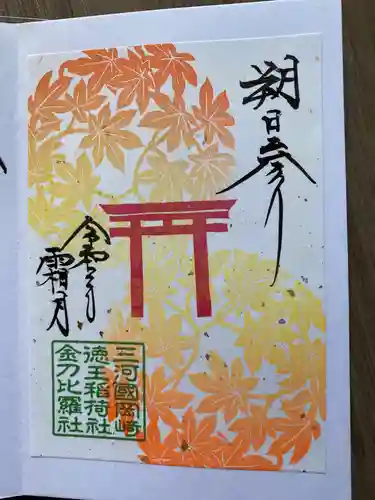 朔日参り
令和二年
霜月
三河國岡崎
徳王稲荷社
金刀比羅社